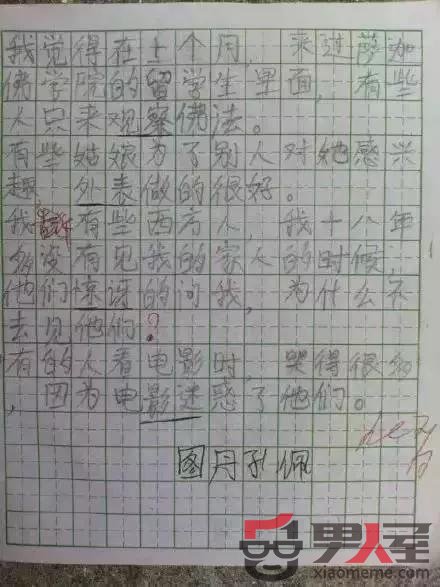 我觉得在十个月，来过萨加
佛学院的留学生里面，有些
人只来观察佛法。
有些姑娘为了别人对她感兴
趣，外表做的很好。
我告诉有些西方人，我十八年
多没有见我的家人的时候，
他们惊讶的问我，为什么不
去见他们？
有的人看电影时，哭得很多
，因为电影迷惑了他们。
图丹孔佩
男人屋
xiaomeme.com